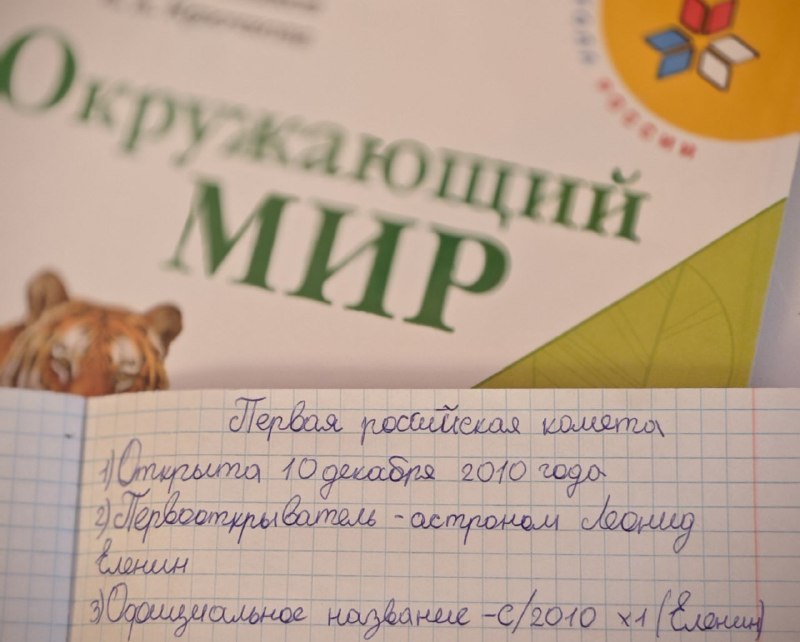 Окружающий
МИР
РОССИИ
Первая российская комета
1) Открыта 10 декабря 2010 года
2) Первооткрыватель - астроном Леонид
Еленин
3) Официальное название - C/2010 x1 (Еленин)